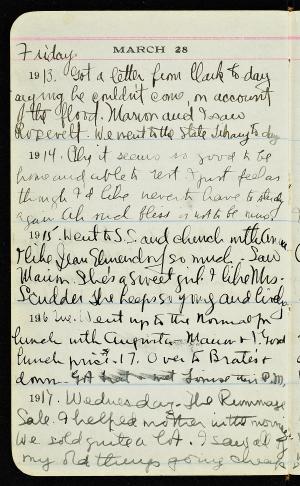 Friday
MARCH 28
1913. Got a letter from Clark to day
saying he couldn't come, on account
of the flood. Marion and I saw
Roosevelt. We went to the State Library to day
1914. My it seems so good to be
home and able to rest. I just feel as
though I'd like never to have to study
again. Ah such bliss is not to be mine.
1915. Went to S.S. and church with Anna
I like Jean so much. Saw
Marion. She's a sweet girl. I like Mrs.
Scudder she keeps so young and lively
1916 Tue. Went up to the Normal for
lunch with Augusta Marion & I. Good
lunch price .17. Over to Brates &
down. Louise this P.M.
1917. Wednesday. The Rummage
Sale. I helped mother in the morning
We sold quite a lot. I saw all of
my old things going cheap